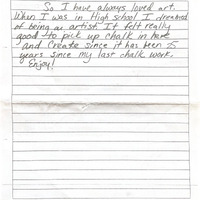 So I have always loved art.
When I was in High school I dreamed
of being an artist. It felt really
good to pick up chalk in here
and create since it has been 25
years since my last chalk work.
Enjoy!